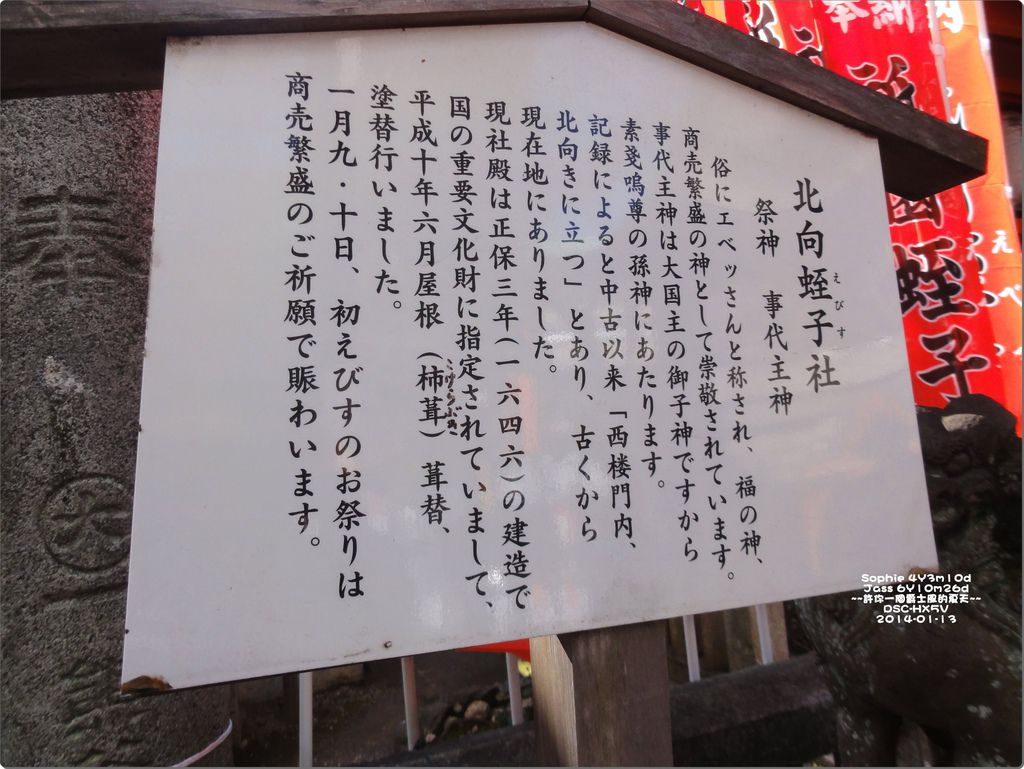 北向蛭子社
えびす
祭神　事代主神
俗にエベッさんと称され、福の神、
商売繁盛の神として崇敬されています。
事代主神は大国主の御子神ですから
素戔嗚尊の孫神にあたります。
記録によると中古以来「西楼門内、
北向きに立つ」とあり、古くから
現在地にありました。
現社殿は正保三年(一六四六)の建造で
国の重要文化財に指定されていまして、
平成十年六月屋根（柿葺）葺替、
こけらぶき
塗替行いました。
一月九・十日、初えびすのお祭りは
商売繁盛のご祈願で賑わいます。
奉納
蛭子
えべっ
奉
Sophie 4Y3m10d
Jass 6Y10m26d
~~許你一個爵士風的夏天~~
DSC-HX5V
2014-01-13